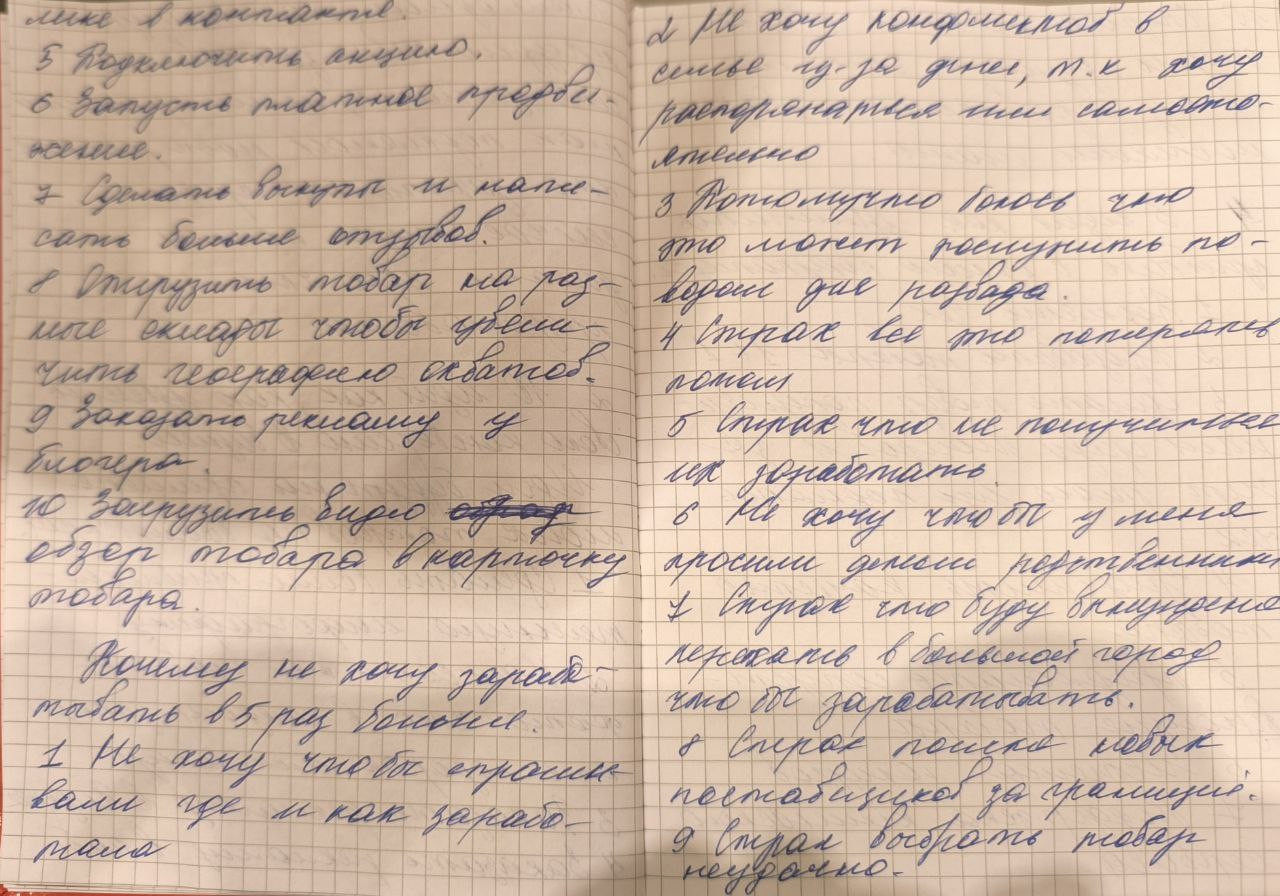 лике в контакте.
5 Подключить акцию.
6 Запусть платное продви-
жение.
7 Сделать выкупы и напи-
сать больше отзывов.
8 Отгрузить товар на раз-
ные склады чтобы увели-
чить географию охватов.
9 Заказать рекламу у
блогера.
10 Загрузить видео
обзор товара в карточку
товара.
Почему не хочу зарабо-
тывать в 5 раз больше.
1 Не хочу чтобы спраши-
вали где и как зарабо-
тала
2 Не хочу конфликтов в
семье из-за денег, т.к хочу
распоряжаться ими самосто-
ятельно
3 Потомучто боюсь что
это может послужить по-
водом для развода.
4 Страх все это потерять
потом
5 Страх что не получиться
их заработать
6 Не хочу чтобы у меня
просили деньги родственники
7 Страх что буду вынуждена
переехать в большой город
что бы зарабатывать.
8 Страх поиска новых
поставщиков за границей.
9 Страх выбрать товар
неудачно.